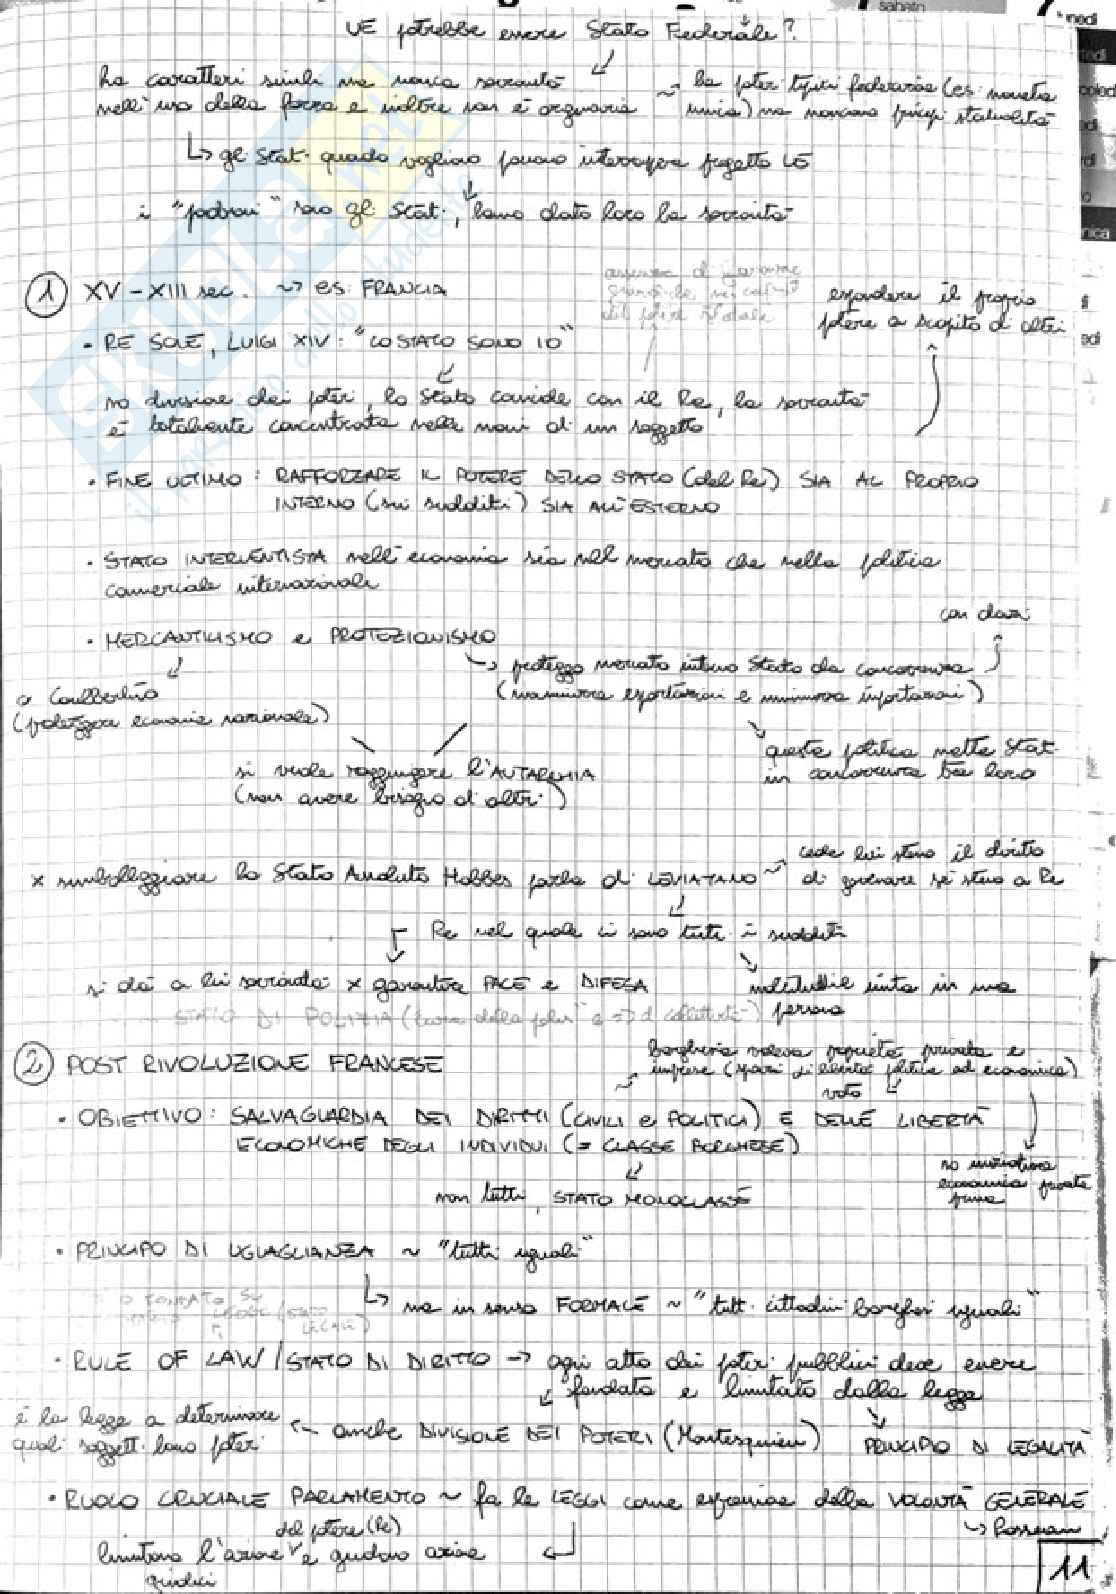 UE potrebbe essere Stato Federale?
ha caratteri simili ma manca sovranità
nell'uso della forza e inoltre non è originaria ~ ha poteri tipici federazione (es: moneta
unica) ma mancano princìpi statualità
↳ gli Stati quando vogliono possono interrompere progetto UE
i "padroni" sono gli Stati, hanno dato loro la sovranità
1 XV-XIII sec. ~> es: FRANCIA
assenza di
espandere il proprio
potere a scapito di altri
• RE SOLE, LUIGI XIV: "LO STATO SONO IO"
no divisione dei poteri, lo Stato coincide con il Re, la sovranità
è totalmente concentrata nelle mani di un soggetto
• FINE ULTIMO: RAFFORZARE IL POTERE DELLO STATO (del Re) SIA AL PROPRIO
INTERNO (sui sudditi) SIA ALL'ESTERNO
• STATO INTERVENTISTA nell'economia sia nel mercato che nella politica
commerciale internazionale
con dazi
• MERCANTILISMO e PROTEZIONISMO
→ proteggo mercato interno Stato da concorrenza
o Coulbertino (massimizza esportazioni e minimizza importazioni)
(proteggere economia nazionale)
questa politica mette Stati
in concorrenza tra loro
si vuole raggiungere l'AUTARCHIA
(non avere bisogno di altri)
cede lui stesso il diritto
di governare sé stesso a Re
x simboleggiare lo Stato Assoluto Hobbes parla di LEVIATANO ~
Re nel quale ci sono tutti i sudditi
si dà a lui sovranità x garantire PACE e DIFESA
moltitudine unita in una
persona
STATO DI POLIZIA
2 POST RIVOLUZIONE FRANCESE
borghesia voleva proprietà privata e
imprese (spazi di libertà politica ed economica)
voto
• OBIETTIVO: SALVAGUARDIA DEI DIRITTI (CIVILI e POLITICI) E DELLE LIBERTÀ
ECONOMICHE DEGLI INDIVIDUI (= CLASSE BORGHESE)
no iniziativa
economica privata
prima
non tutti, STATO MONOCLASSE
• PRINCIPO DI UGUAGLIANZA ~ "tutti uguali"
↳ ma in senso FORMALE ~ "tutti cittadini borghesi uguali"
FONDATO SU
LEGGE (STATO
LEGALE)
• RULE OF LAW / STATO DI DIRITTO → ogni atto dei poteri pubblici deve essere
fondato e limitato dalla legge
è la legge a determinare
quali soggetti hanno poteri
anche DIVISIONE DEI POTERI (Montesquieu)
PRINCIPIO DI LEGALITÀ
• RUOLO CRUCIALE PARLAMENTO ~ fa le LEGGI come espressione della VOLONTÀ GENERALE
→ Rosseau
del potere (Re)
limitano l'azione e guidano azione
giudici
11